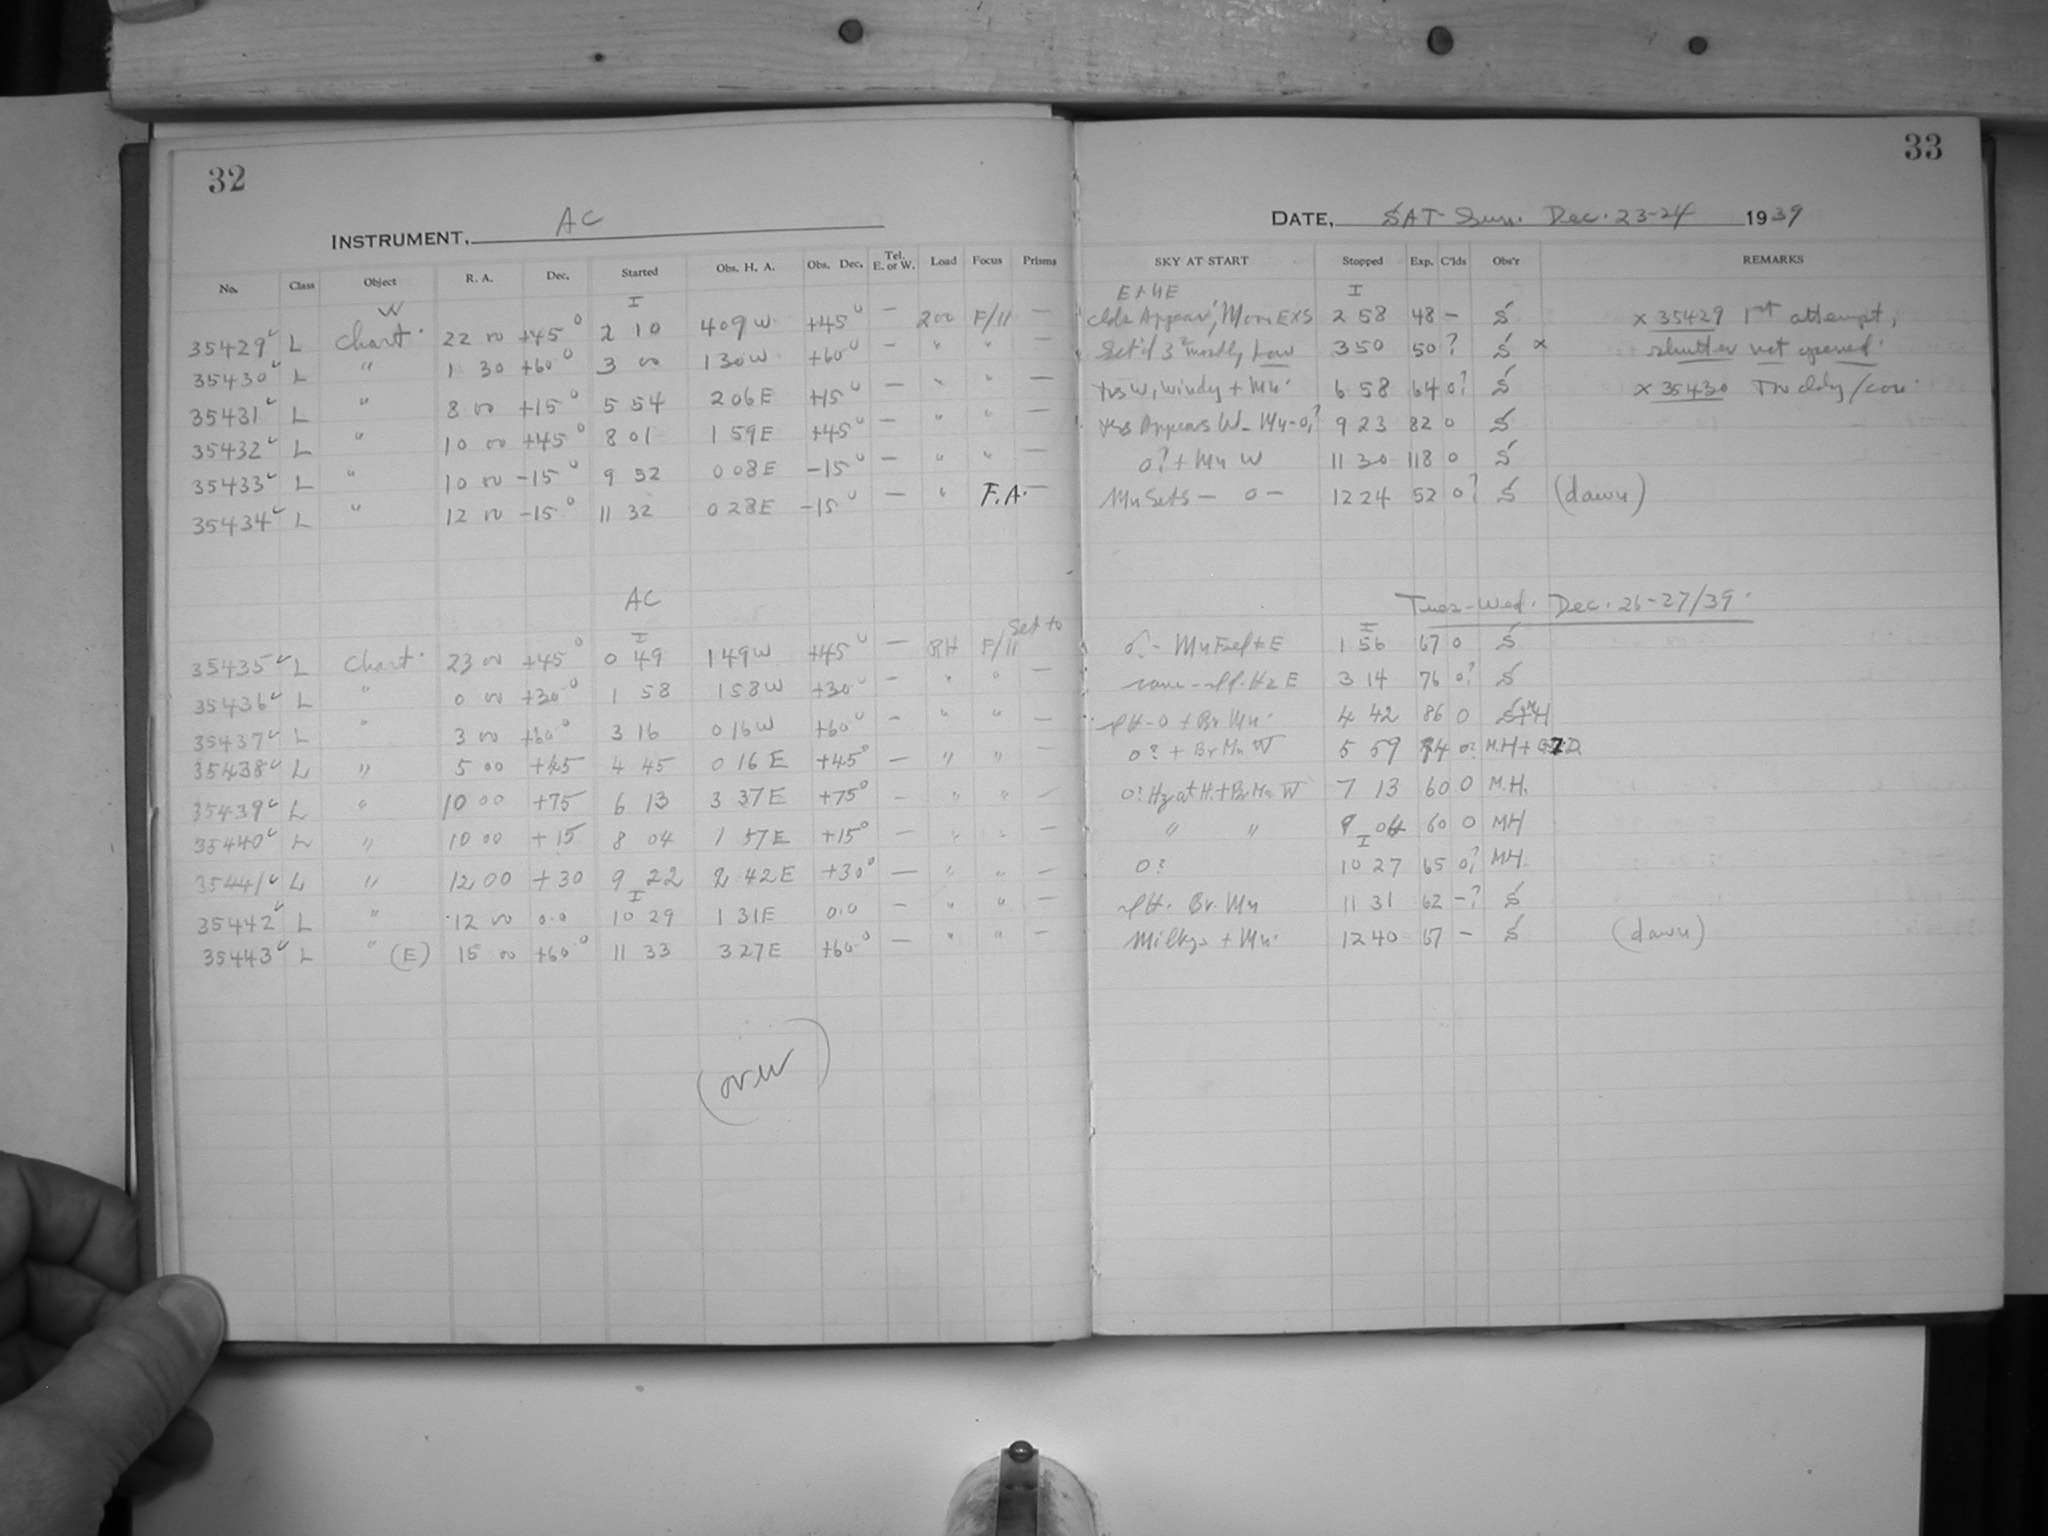 32
INSTRUMENT, AC
No. Class Object R. A. Dec. Started Obs. H. A. Obs. Dec. Tel. E. or W. Load Focus Prisms
W I
35429 L Chart 22 00 +45° 2 10 4 09 W +45° — 200 F/11 —
35430 L " 1 30 +60° 3 00 1 30 W +60° — " " —
35431 L " 8 00 +15° 5 54 2 06 E +15° — " " —
35432 L " 10 00 +45° 8 01 1 59 E +45° — " " —
35433 L " 10 00 -15° 9 32 0 08 E -15° — " " —
35434 L " 12 00 -15° 11 32 0 28 E -15° — " F.A. —
AC
I Set to
35435 L Chart 23 00 +45° 0 49 1 49 W +45° — RH F/11
35436 L " 0 00 +30° 1 58 1 58 W +30° — " " —
35437 L " 3 00 +60° 3 16 0 16 W +60° — " " —
35438 L " 5 00 +45 4 45 0 16 E +45° — " " —
35439 L " 10 00 +75 6 13 3 37 E +75° — " " —
35440 L " 10 00 +15 8 04 1 57 E +15° — " " —
35441 L " 12 00 +30 9 22 2 42 E +30° — " " —
I
35442 L " 12 00 0.0 10 29 1 31 E 0.0 — " " —
35443 L " (E) 15 00 +60° 11 33 3 27 E +60° — " " —
(over)
33
DATE, SAT-Sun. Dec. 23-24 1939
SKY AT START Stopped Exp. C'lds Obs'r REMARKS
E + NE I
Clds Appear, Moon EXS 2 58 48 - S x 35429 1st attempt,
mostly Low 3 50 50 ? S x shutter not opened.
W, windy + Mn. 6 58 64 0? S x 35430
Appears W- Mn-0? 9 23 82 0 S
0? + Mn W 11 30 118 0 S
Mn Sets — 0 — 12 24 52 0? S (dawn)
Tues-Wed. Dec. 26-27/39.
I
0- Mn E 1 56 67 0 S
same E 3 14 76 0? S
0 + Br Mn. 4 42 86 0
0? + Br Mn W 5 59 74 0? M.H +
0? Hz at H. + Br Mn W 7 13 60 0 M.H.
" " 9 04 60 0 MH
I
0? 10 27 65 0? MH
Br. Mn 11 31 62 -? S
Milky + Mn. 12 40 67 - S (dawn)